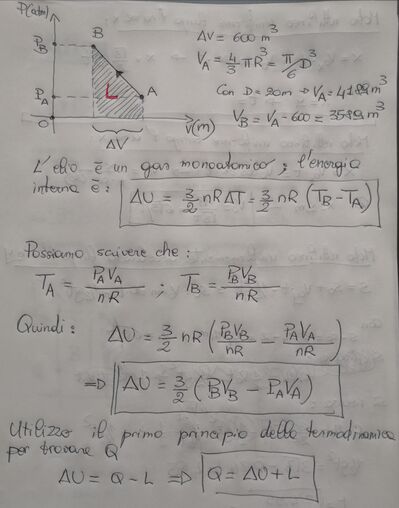 P(atm)
P_B
B
P_A
L
A
O
V(m)
ΔV
ΔV = 600 m³
V_A = 4/3 πR³ = π/6 D³
Con D = 20m ⇒ V_A = 4189 m³
V_B = V_A - 600 = 3589 m³
L'elio è un gas monoatomico, l'energia
interna è: ΔU = 3/2 nRΔT = 3/2 nR (T_B - T_A)
Possiamo scrivere che:
T_A = P_A V_A / nR ; T_B = P_B V_B / nR
Quindi: ΔU = 3/2 nR (P_B V_B / nR - P_A V_A / nR)
⇒ ΔU = 3/2 (P_B V_B - P_A V_A)
Utilizzo il primo principio della termodinamica
per trovare Q
ΔU = Q - L ⇒ Q = ΔU + L